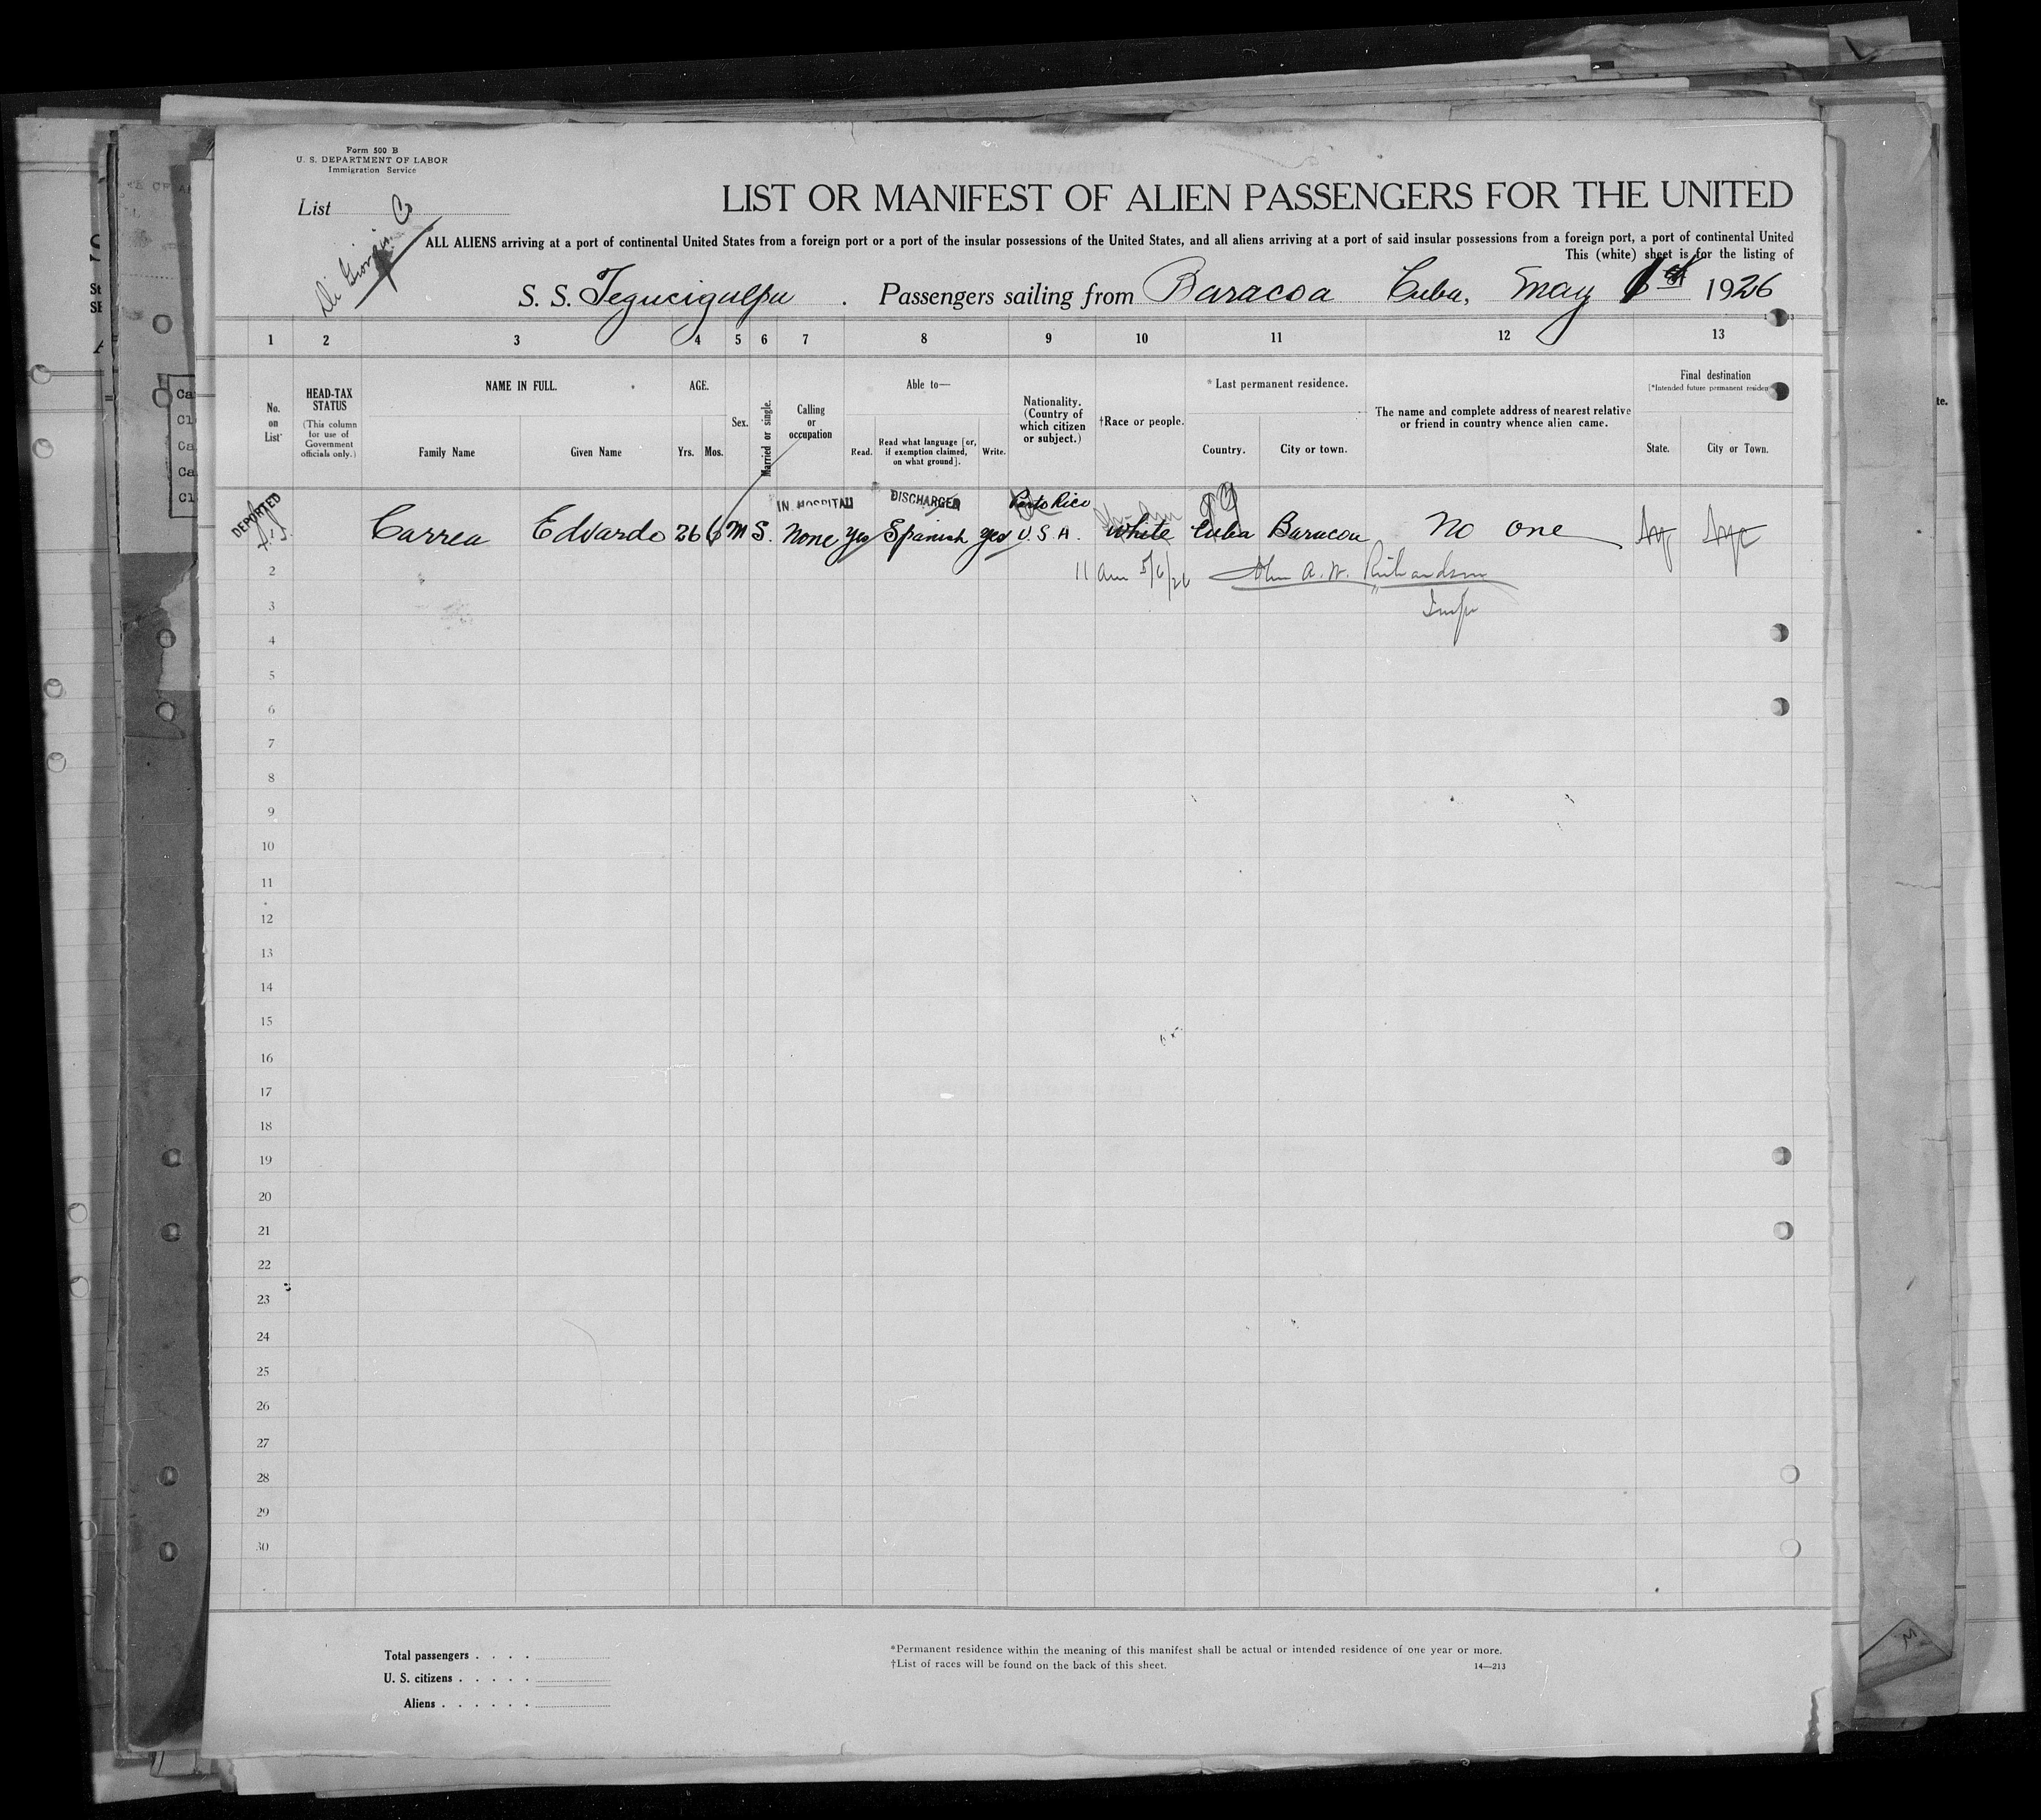 Form 500 B
U. S. DEPARTMENT OF LABOR
Immigration Service
List
Di Giorgio Co
LIST OR MANIFEST OF ALIEN PASSENGERS FOR THE UNITED
ALL ALIENS arriving at a port of continental United States from a foreign port or a port of the insular possessions of the United States, and all aliens arriving at a port of said insular possessions from a foreign port, a port of continental United
This (white) sheet is for the listing of
S. S. Tegucigalpa . Passengers sailing from Baracoa Cuba, May 1926
1 2 3 4 5 6 7 8 9 10 11 12 13
No. on List
HEAD-TAX STATUS
(This column for use of Government officials only.)
NAME IN FULL.
Family Name Given Name
AGE.
Yrs. Mos.
Sex.
Married or single.
Calling or occupation
Able to—
Read. Read what language [or, if exemption claimed, on what ground]. Write.
Nationality. (Country of which citizen or subject.)
†Race or people.
* Last permanent residence.
Country. City or town.
The name and complete address of nearest relative or friend in country whence alien came.
Final destination
[*Intended future permanent residen
State. City or Town.
DEPORTED IN HOSPITAL DISCHARGED Porto Rico
Carrea Edvardo 26 6 M S. None Yes Spanish yes U.S.A. White Cuba Baracoa No one
2 11 am 5/6/26 John A. W. Richardson
3 Insp
4
5
6
7
8
9
10
11
12
13
14
15
16
17
18
19
20
21
22
23
24
25
26
27
28
29
30
Total passengers . . . .
U. S. citizens . . . . .
Aliens . . . . . .
*Permanent residence within the meaning of this manifest shall be actual or intended residence of one year or more.
†List of races will be found on the back of this sheet. 14—213